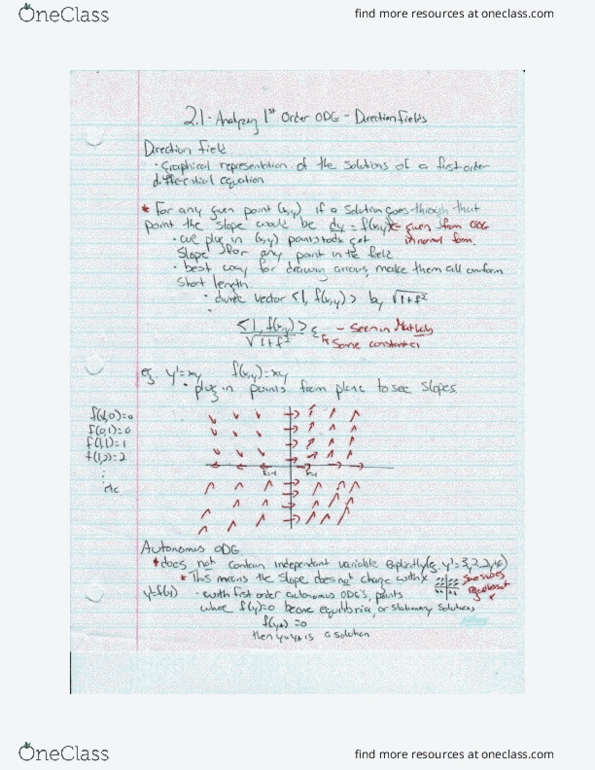 OneClass
find more resources at oneclass.com
2.1 - Analyzing 1st Order ODE - Direction Fields
Direction Field
· Graphical representation of the solutions of a first order
differential equation
* For any given point (x,y) if a solution goes through that
point the slope would be dy = f(x,y) ← given from ODE
in normal form
· we plug in (x,y) points to get
slope for any point in the field
· best way for drawing arrows, make them all uniform
short length
· divide vector <1, f(x,y)> by √1+f²
<1, f(x,y)> ε - Seen in Matlab
√1+f² Some constant
eg. y'=xy f(x,y)=xy
· plug in points from plane to see slopes
f(1,0)=0
f(0,1)=0
f(1,1)=1
f(1,2)=2
:
etc
Autonomous ODE
* does not contain independent variable explicitly (eg.
* This means the slope does not change with x
y'=f(y) · with first order autonomous ODE's, points
where f(y)=0 become equilibria, or stationary solutions
f(y*)=0
then y=y* is a solution
OneClass
find more resources at oneclass.com